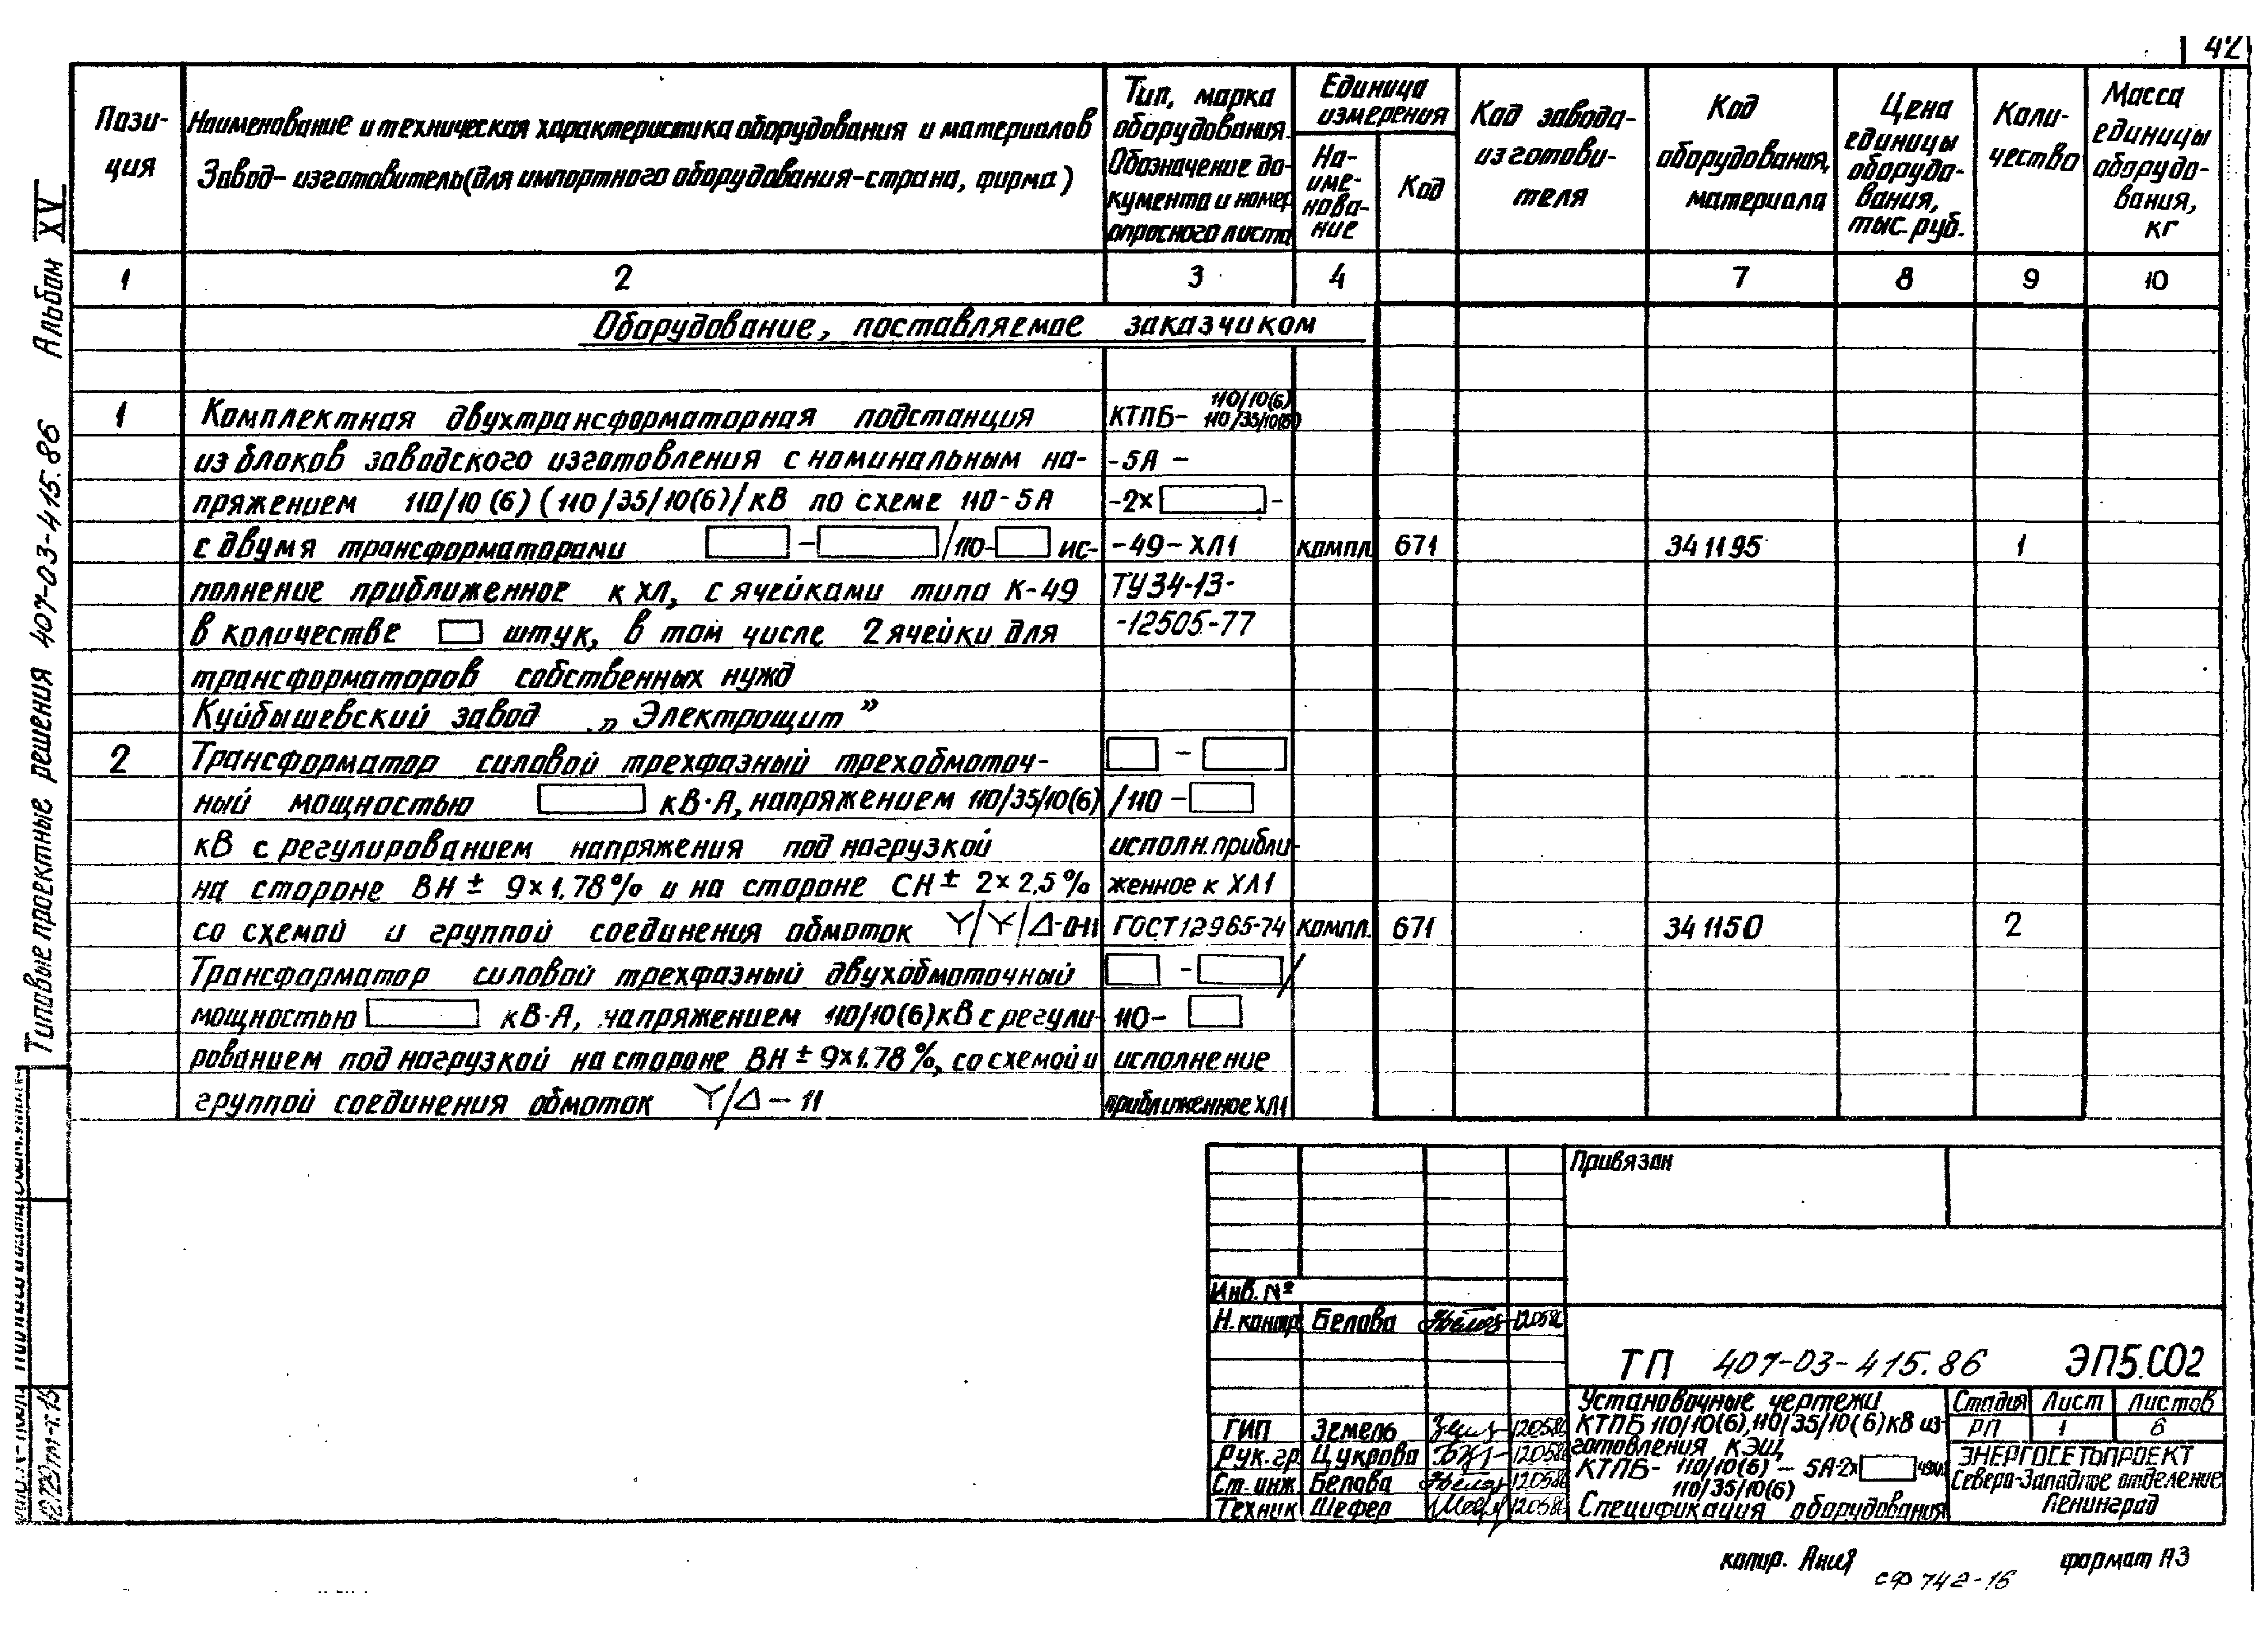 42
Пози-
ция
Наименование и техническая характеристика оборудования и материалов
Завод-изготовитель (для импортного оборудования-страна, фирма)
Тип, марка
оборудования.
Обозначение до-
кумента и номер
опросного листа
Единица
измерения
На-
име-
нова-
ние
Код
Код завода-
изготови-
теля
Код
оборудования,
материала
Цена
единицы
оборудо-
вания,
тыс. руб.
Коли-
чество
Масса
единицы
оборудо-
вания,
кг
1 2 3 4 7 8 9 10
Оборудование, поставляемое заказчиком
1 Комплектная двухтрансформаторная подстанция КТПБ- 110/10(6)
110/35/10(6)
из блоков заводского изготовления с номинальным на- -5А -
пряжением 110/10 (6) (110/35/10(6)/кВ по схеме 110-5А -2х -
с двумя трансформаторами - /110- ис- -49-ХЛ1 компл. 671 341195 1
полнение приближенное к ХЛ, с ячейками типа К-49 ТУ34-13-
в количестве штук, в том числе 2 ячейки для -12505-77
трансформаторов собственных нужд
Куйбышевский завод „Электрощит”
2 Трансформатор силовой трехфазный трехобмоточ- -
ный мощностью кВ·А, напряжением 110/35/10(6) /110 -
кВ с регулированием напряжения под нагрузкой исполн. прибли-
на стороне ВН ± 9×1.78% и на стороне СН ± 2×2,5% женное к ХЛ1
со схемой и группой соединения обмоток Y/Y/Δ-0-11 ГОСТ 12965-74 компл. 671 341150 2
Трансформатор силовой трехфазный двухобмоточный - /
мощностью кВ·А, напряжением 110/10(6)кВ с регули- 110-
рованием под нагрузкой на стороне ВН ± 9×1.78%, со схемой и исполнение
группой соединения обмоток Y/Δ - 11 приближенное ХЛ1
Альбом XV
Типовые проектные решения 407-03-415.86
12729тм-т.15
Привязан
Инв. №
Н. контр. Белова 120586
ТП 407-03-415.86 ЭП5.СО2
ГИП Земель 120586
Рук. гр. Цукрова 120586
Ст. инж Белова 120586
Техник Шефер 120586
Установочные чертежи
КТПБ 110/10(6), 110/35/10(6) кВ из-
готовления КЭЩ
КТПБ- 110/10(6) - 5А-2х 49ХЛ1
110/35/10(6)
Спецификация оборудования
Стадия Лист Листов
РП 1 6
ЭНЕРГОСЕТЬПРОЕКТ
Северо-Западное отделение
Ленинград
копир. Аниф
формат А3
сф 742-16